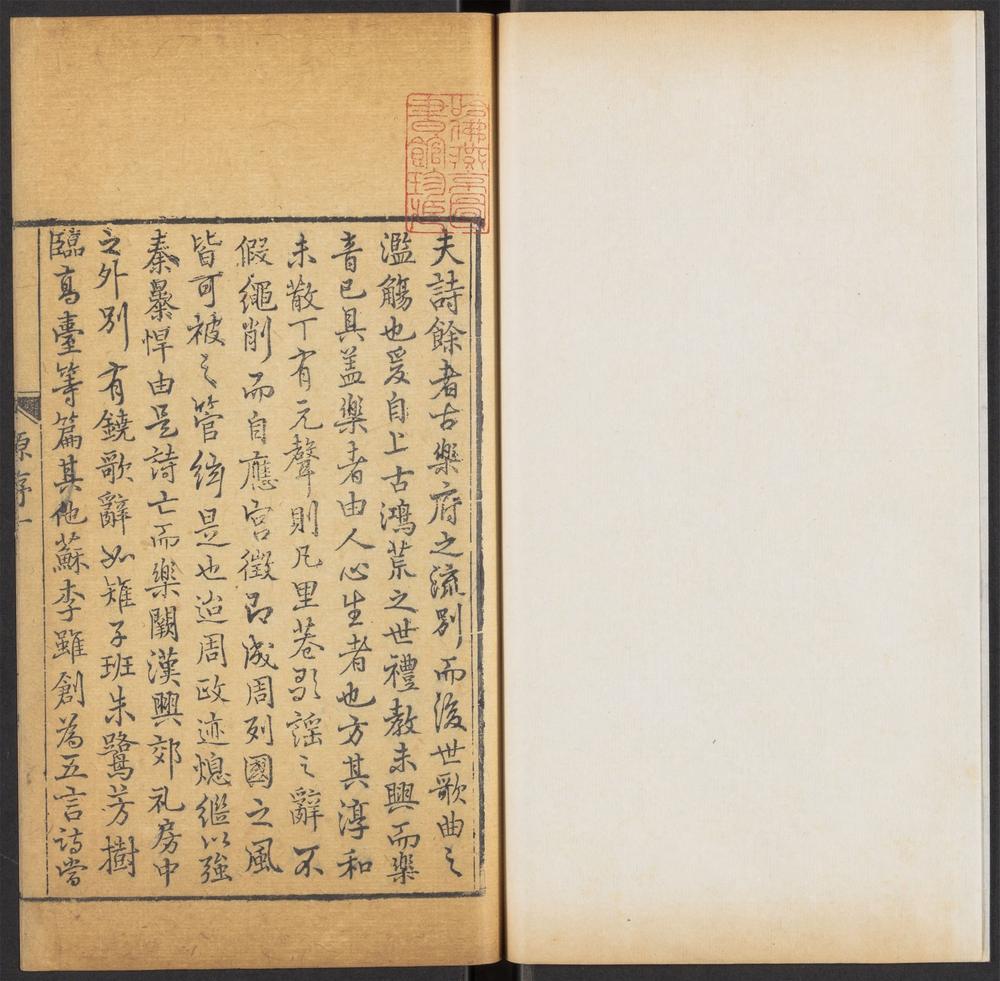 夫詩餘者古樂府之流別而後世歌曲之
濫觴也爰自上古鴻荒之世禮教未興而樂
音已具盖樂者由人心生者也方其淳和
未散下有元聲則凡里巷歌謡之辭不
假繩削而自應宮徵即成周列國之風
皆可被之管絃是也迨周政迹熄繼以強
秦暴悍由是詩亡而樂闕漢興郊礼房中
之外別有鐃歌辭如雉子班朱鷺芳樹
臨高臺等篇其他蘇李雖創為五言詩當
原序一
哈佛燕京圖
書館珍藏